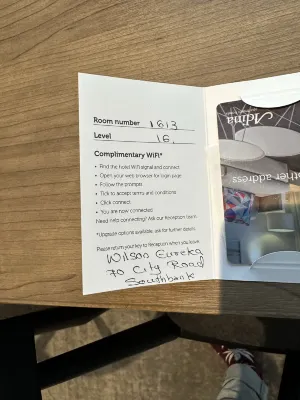 Room number 1613
Level 16.
Complimentary WiFi*
• Find the hotel WiFi signal and connect
• Open your web browser for login page
• Follow the prompts
• Tick to accept terms and conditions
• Click connect
• You are now connected
Need help connecting? Ask our Reception team.
*Upgrade options available, ask for further details.
Please return your key to Reception when you leave.
Wilson Eureka
70 City Road
Southbank
Adina
other address